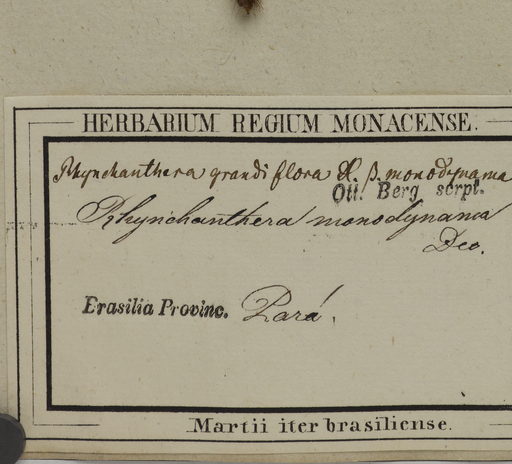 HERBARIUM REGIUM MONACENSE.
Rhynchanthera grandiflora β. monodynama
Ott. Berg scrpt.
Rhynchanthera monodynama
Dec.
Brasilia Provinc. Pará.
Martii iter brasiliense.